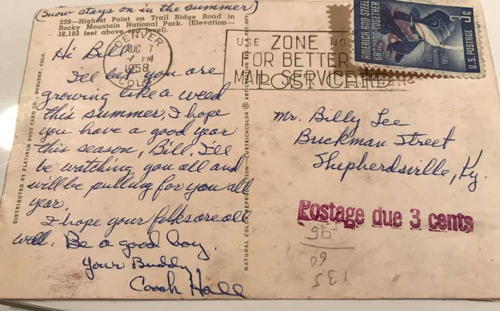 (Snow stays on in the summer)
239—Highest Point on Trail Ridge Road in
Rocky Mountain National Park. (Elevation—
12,183 feet above sea level).
Hi Bill,
I'll bet you are
growing like a weed
this summer. I hope
you have a good year
this season, Bill. I'll
be watching you all and
will be pulling for you all
year.
I hope your folks are all
well. Be a good boy.
Your Buddy
Coach Hall
DISTRIBUTED BY PLATINUM POST CARD CO., BOULDER, COLO.
NATURAL COLOR REPRODUCTION
DENVER
AUG 7
PM
1958
COLO.
USE ZONE NOS.
FOR BETTER
MAIL SERVICE
POST CARD
AMERICA AND STEEL
GROWING TOGETHER
1857 1957
3¢
U.S. POSTAGE
Mr. Billy Lee
Buckman Street
Shepherdsville, Ky.
Postage due 3 cents
135
60